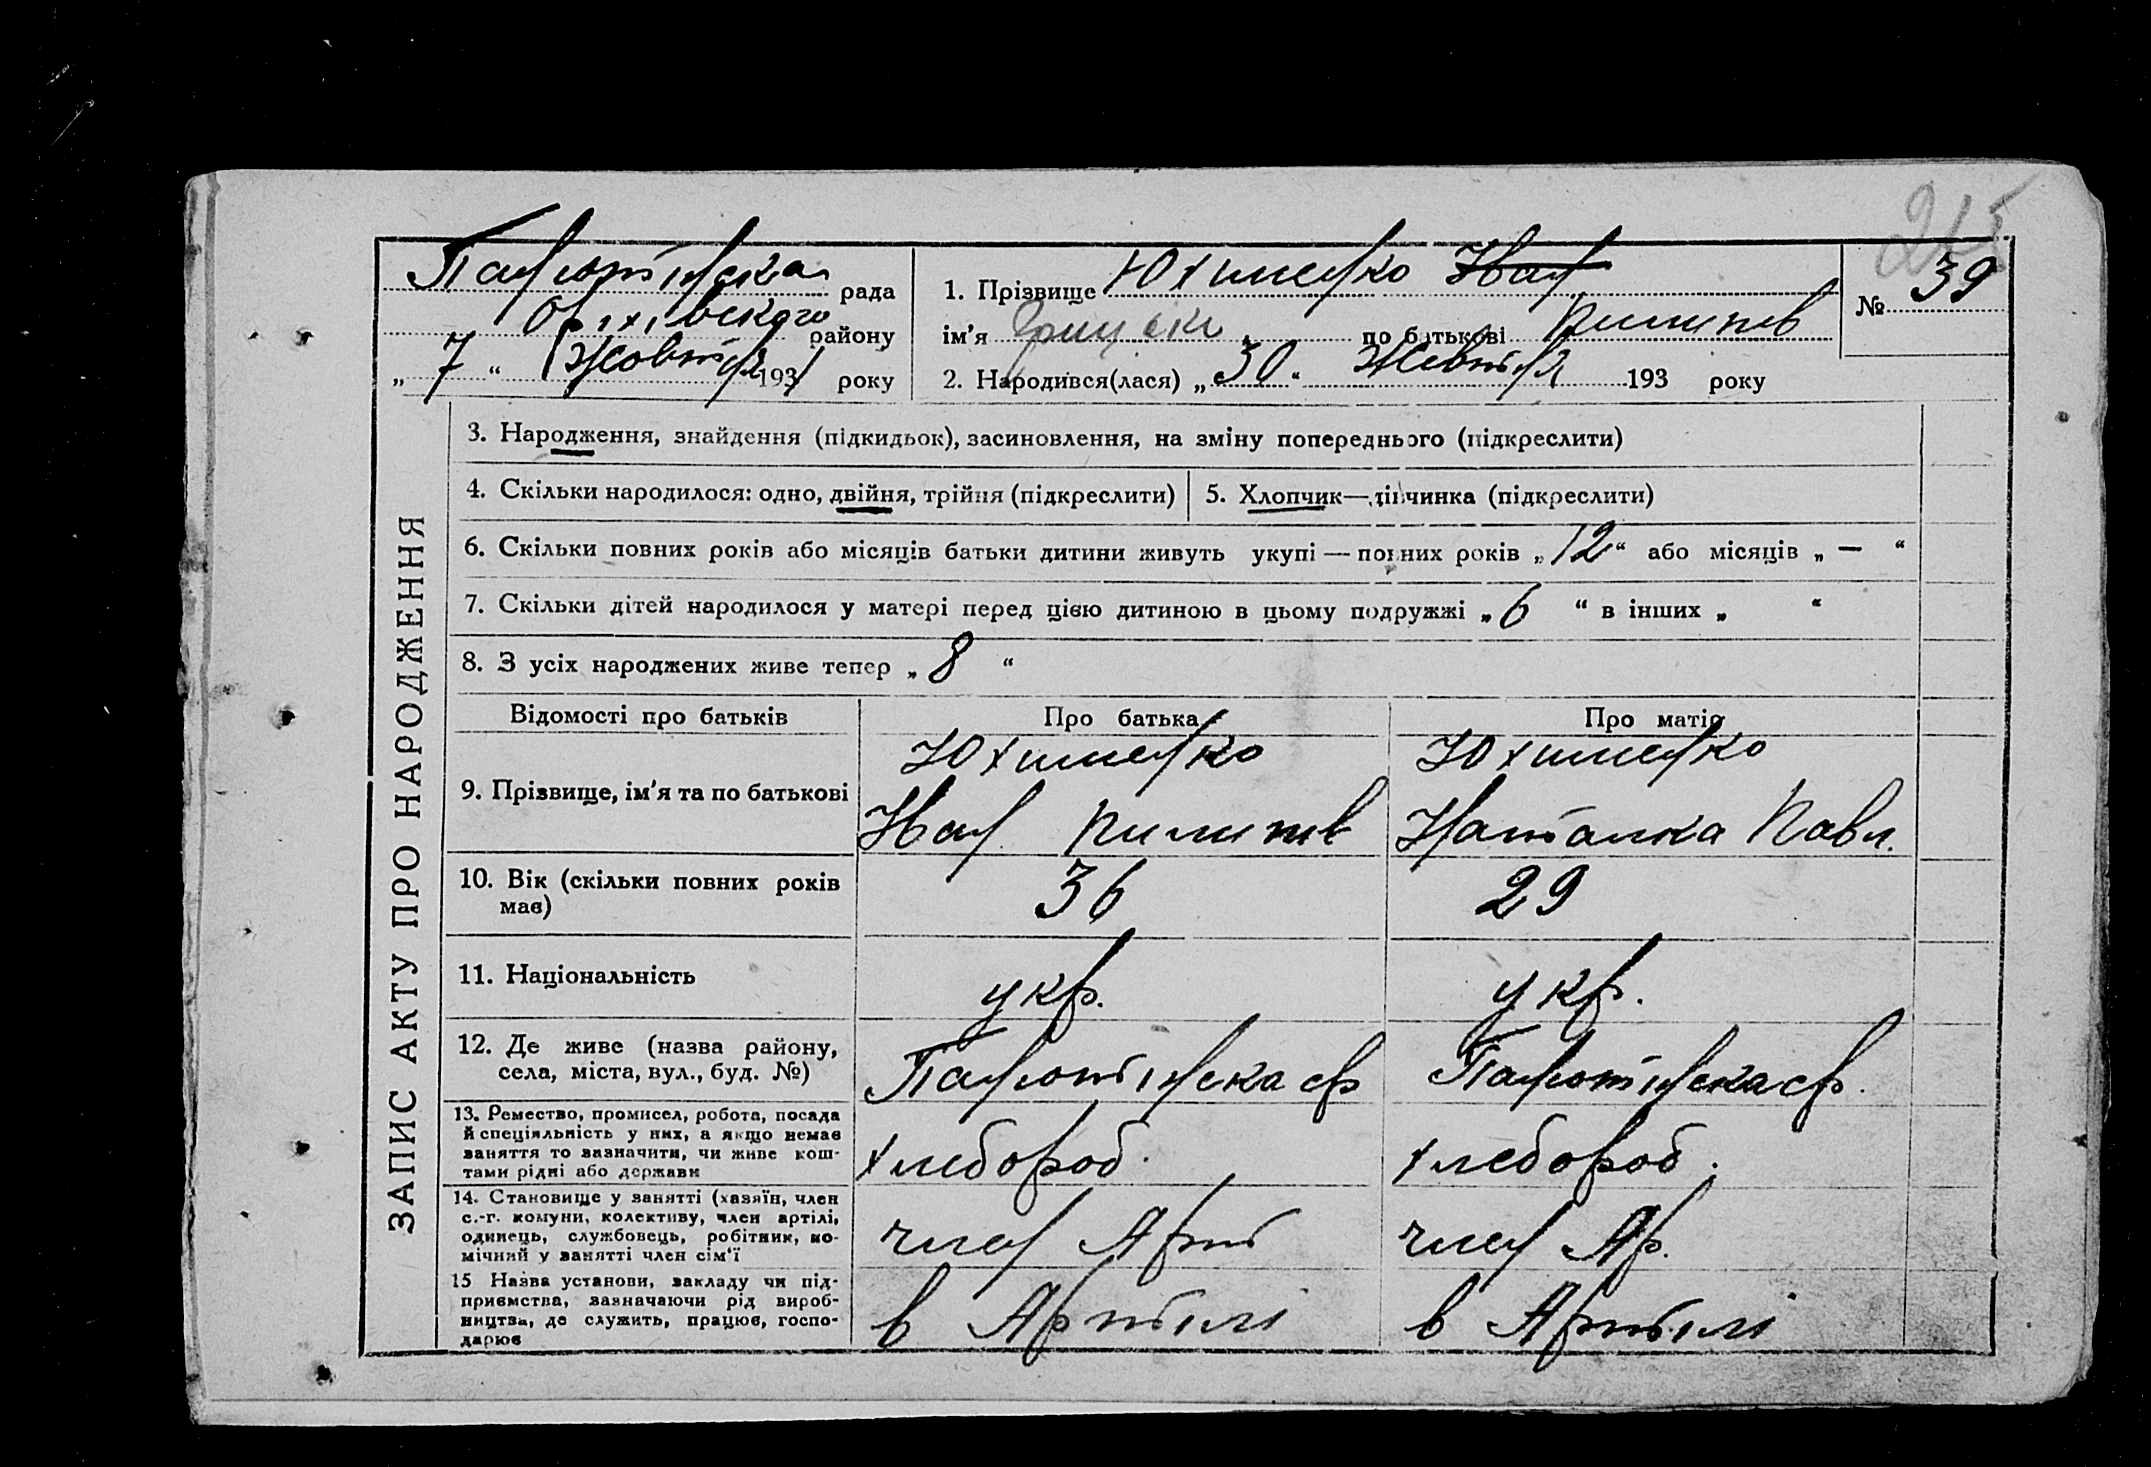 215
Панютинска рада
Оріхівского району
„ 7 “ Жовтня 1931 року
1. Прізвище Юхименко Иван
ім’я по батькові Пилипів
2. Народився(лася) „ 30 “ Жовтня 193 року
№ 39
ЗАПИС АКТУ ПРО НАРОДЖЕННЯ
3. Народження, знайдення (підкидьок), засиновлення, на зміну попереднього (підкреслити)
4. Скільки народилося: одно, двійня, трійня (підкреслити)
5. Хлопчик—дівчинка (підкреслити)
6. Скільки повних років або місяців батьки дитини живуть укупі — повних років „ 12 “ або місяців „ — “
7. Скільки дітей народилося у матері перед цією дитиною в цьому подружжі „ 6 “ в інших „ “
8. З усіх народжених живе тепер „ 8 “
Відомості про батьків
Про батька
Про матір
9. Прізвище, ім’я та по батькові
Юхименко
Иван Пилипів
Юхименко
Наталка Павл.
10. Вік (скільки повних років
має)
36
29
11. Національність
укр.
укр.
12. Де живе (назва району,
села, міста, вул., буд. №)
Панютинска ср
Панютинска ср.
13. Ремество, промисел, робота, посада
й спеціяльність у них, а якщо немає
заняття то зазначити, чи живе кош-
тами рідні або держави
хлебороб.
хлебороб.
14. Становище у занятті (хазяїн, член
с.-г. комуни, колективу, член артілі,
одинець, службовець, робітник, по-
мічний у занятті член сім’ї
член Арт
член Ар.
15 Назва установи, закладу чи під-
приємства, зазначаючи рід вироб-
ництва, де служить, працює, госпо-
дарює
в Артілі
в Артілі